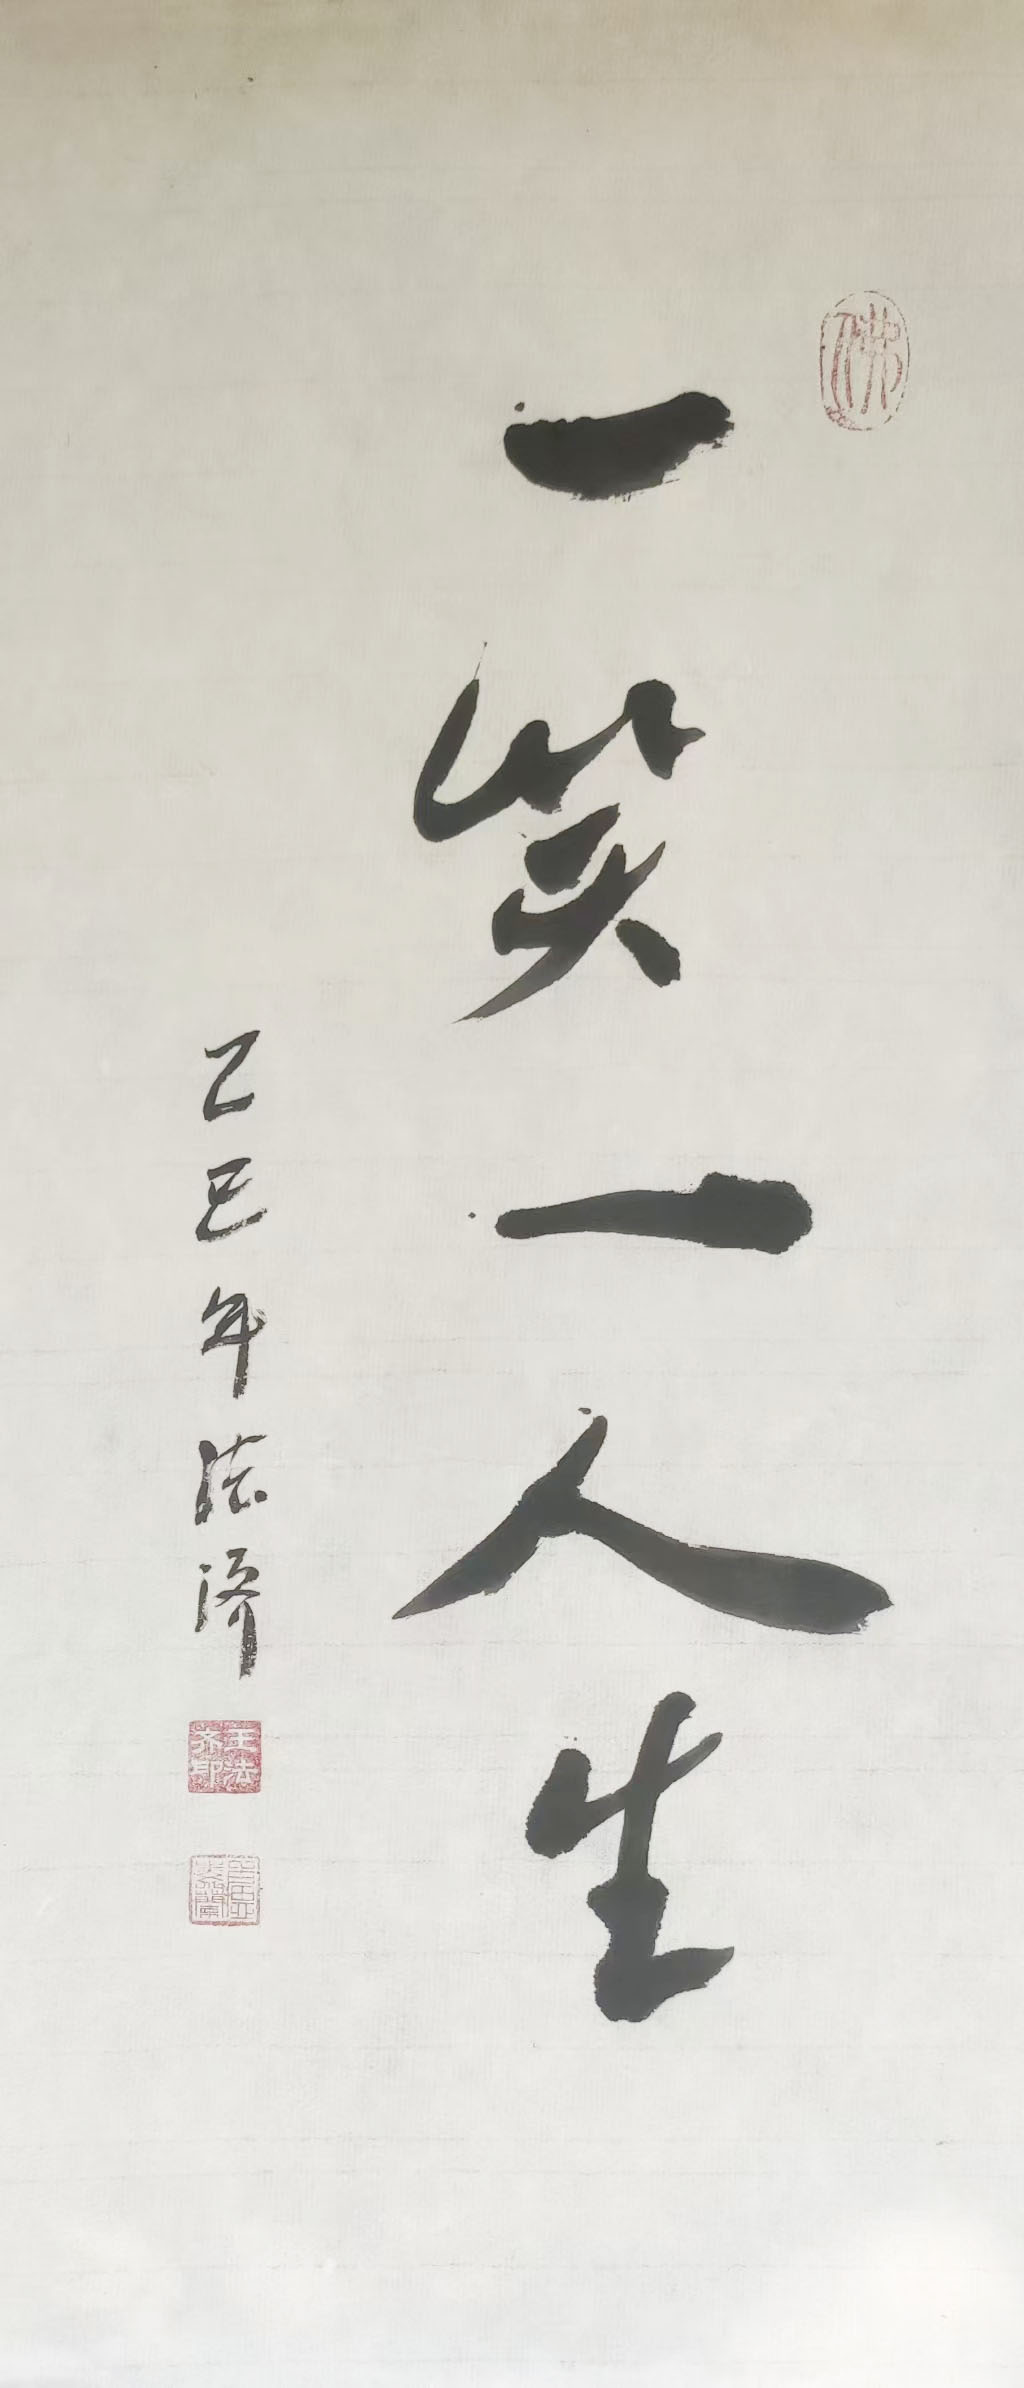 佛
一笑一人生
乙巳年法济
王法齐印